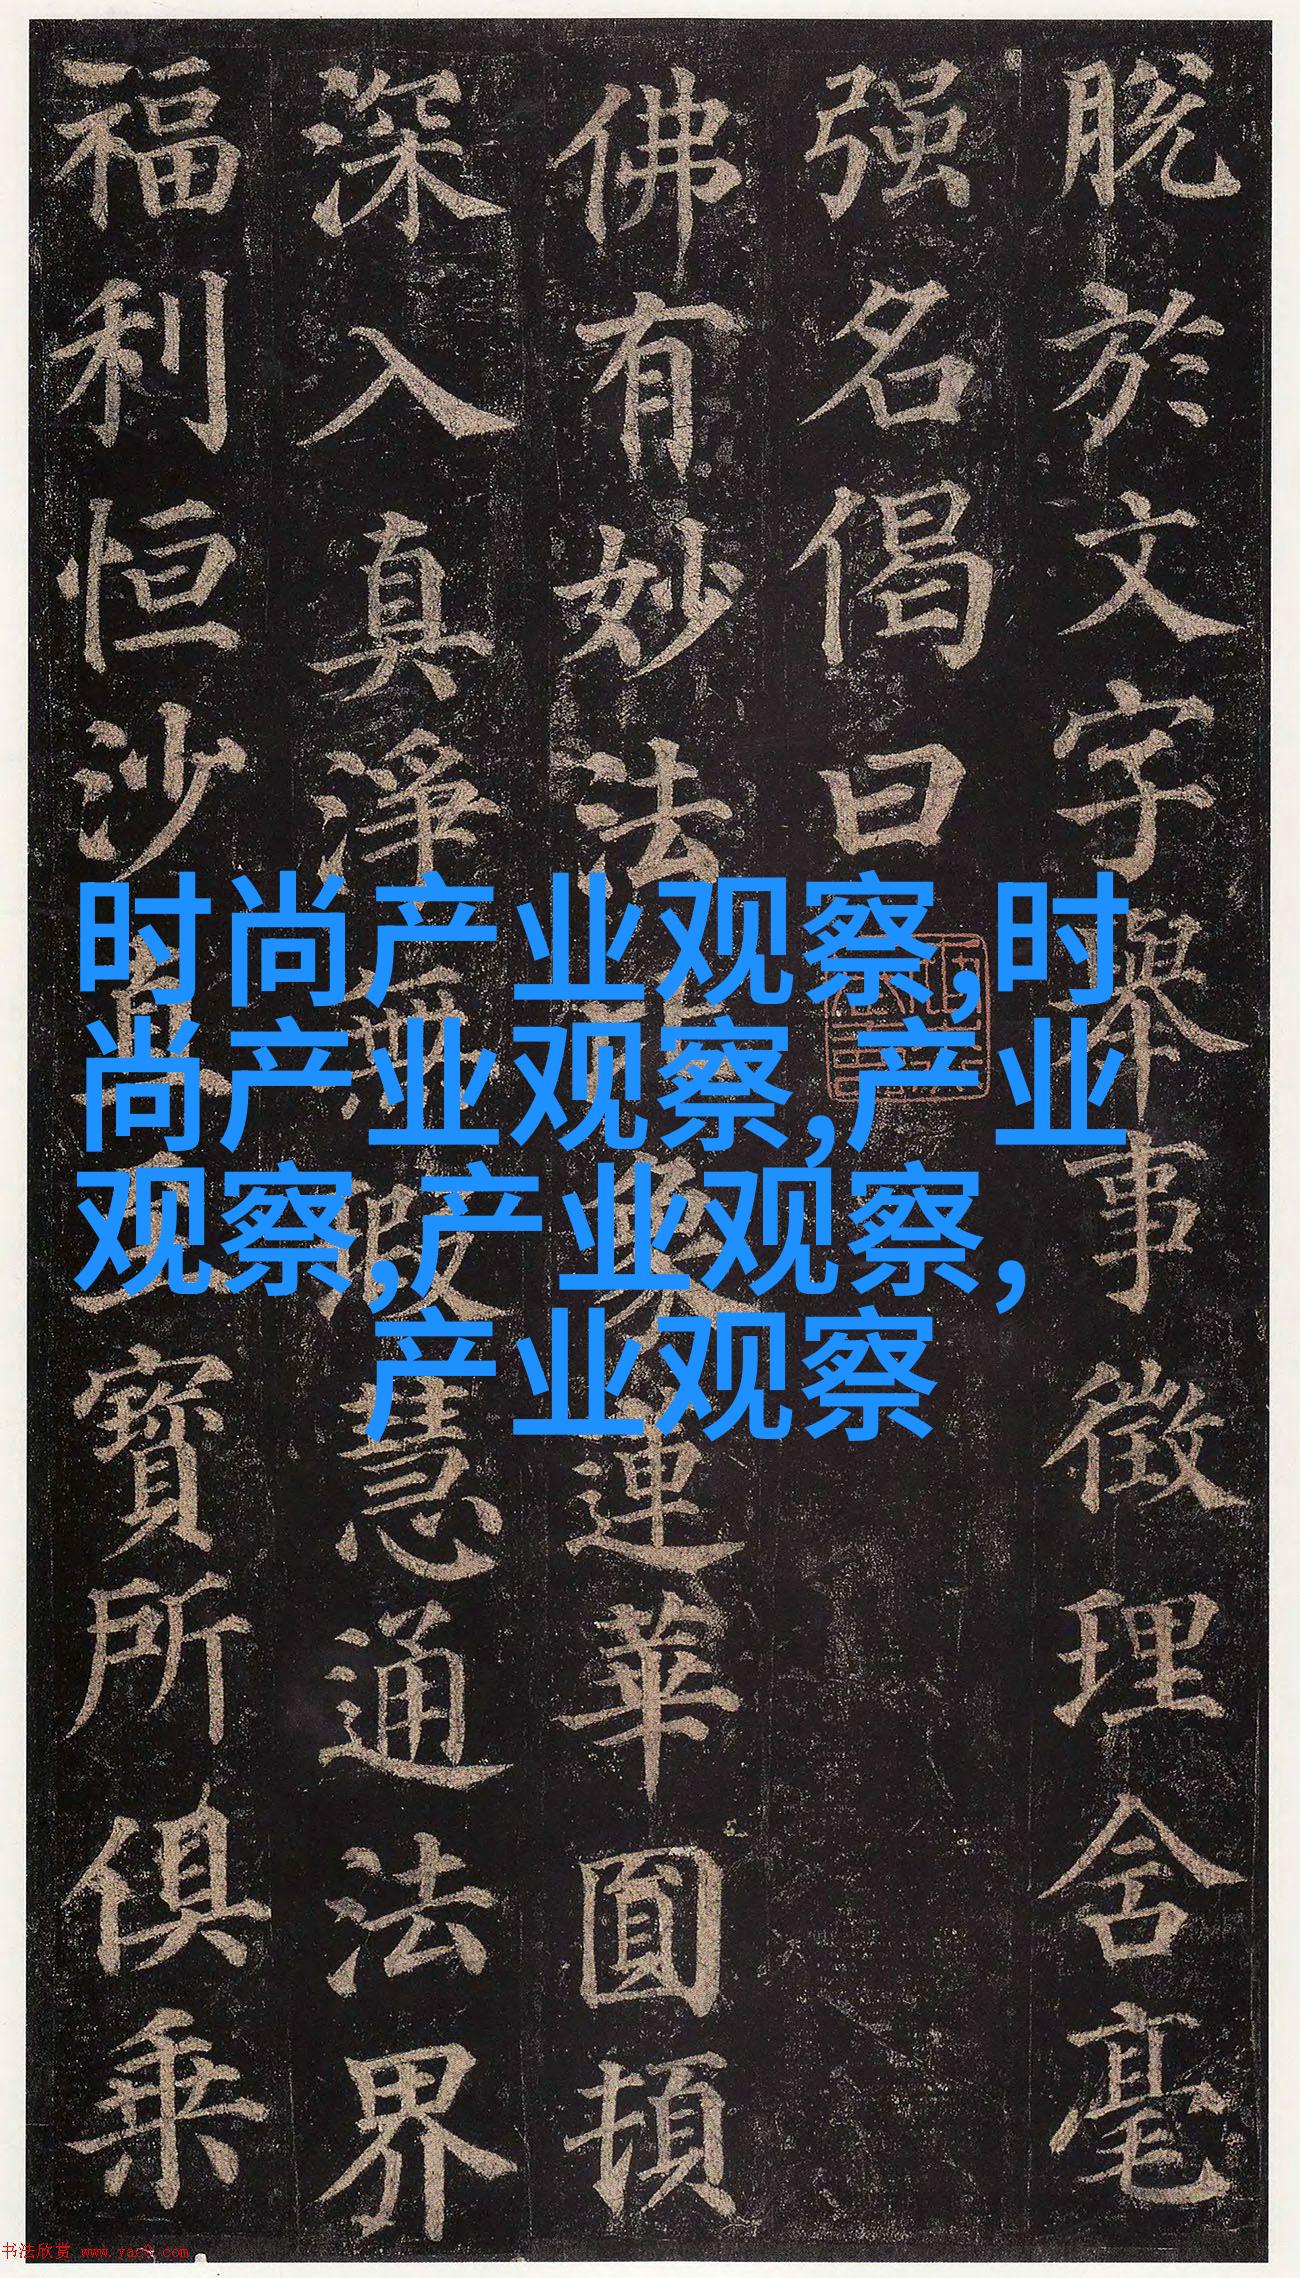 脱於文字舉事徵理含毫
强名偈曰
佛有妙法象蓮華圓頓
深入真淨無瑕慧通法界
福利恒沙直寶所俱乘
时尚产业观察,时
尚产业观察,产业
观察,产业观察,
产业观察
书法欣赏 www.yac8.com